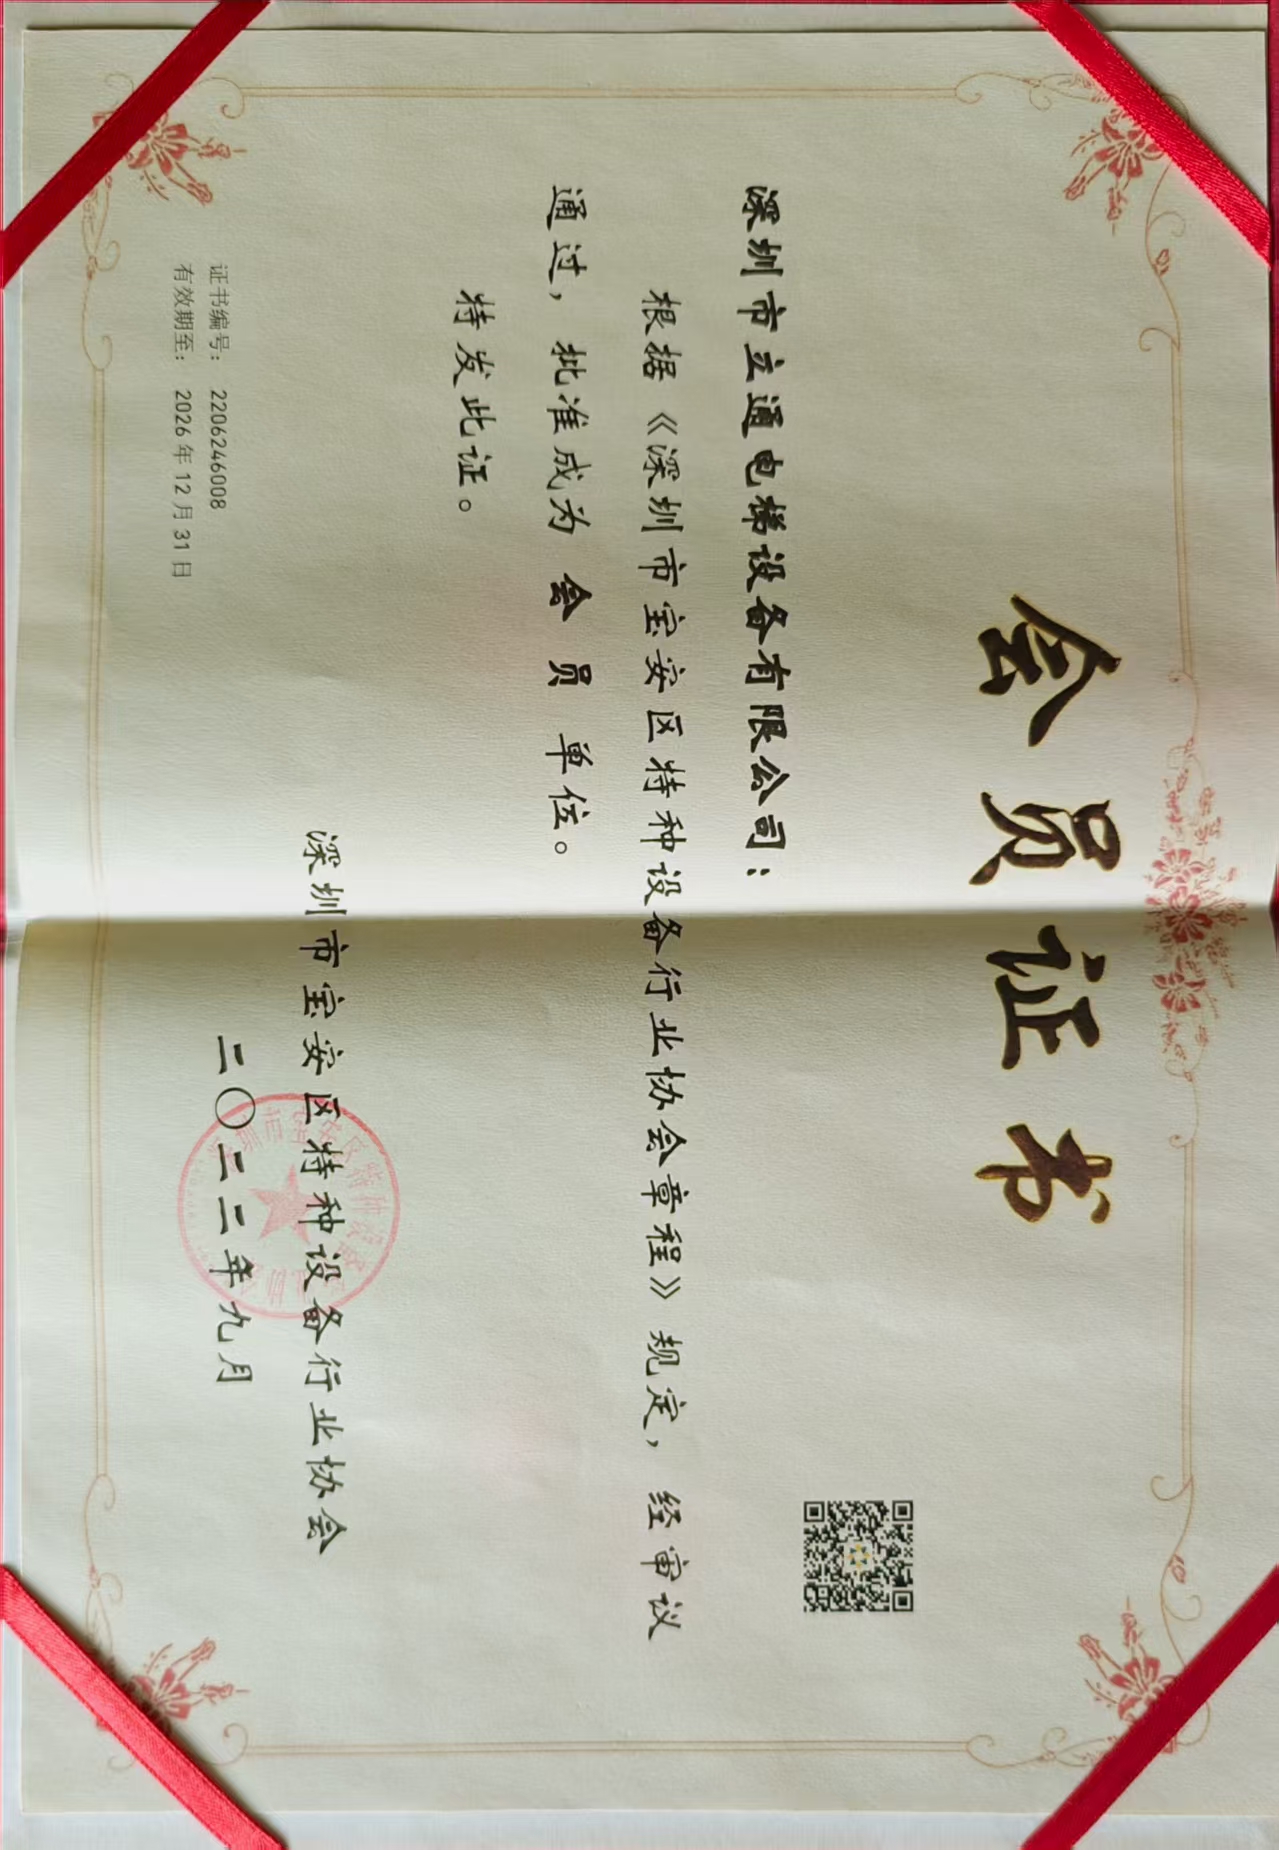 会员证书
深圳市立通电梯设备有限公司：
根据《深圳市宝安区特种设备行业协会章程》规定，经审议
通过，批准成为 会 员 单位。
特发此证。
深圳市宝安区特种设备行业协会
二〇二二年九月
证书编号： 2206246008
有效期至： 2026年12月31日